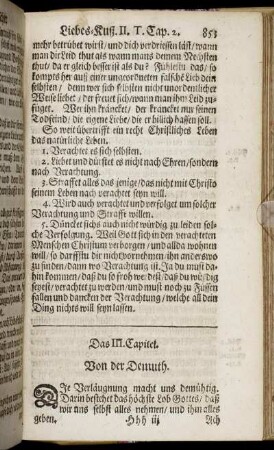 Liebes-Kuß. II. T. Cap. 2. 853
mehr betrübet wirst / und dich verdriessen läst / wann
man dir Leid thut als wann mans deinem Nechsten
thut / da er gleich besser ist als du? Fühlestu das / so
kompts her auß einer ungeordneten falsche Lieb dein
selbsten / denn wer sich selbsten nicht unordentlicher
Weise liebet / der freuet sich wann man ihm Leid zu-
füget. Wer ihn kräncket / der kräncket nur seinen
Todfeind / die eigene Liebe / die er billich hassen soll.
So weit übertrifft ein recht Christliches Leben
das natürliche Leben.
1. Verachtet es sich selbsten.
2. Liebet und dürstet es nicht nach Ehren / sondern
nach Verachtung.
3. Straffet alles das jenige / das nicht mit Christo
seinem Leben nach verachtet seyn will.
4. Wird auch verachtet und verfolget um solcher
Verachtung und Straffe willen.
5. Düncket sichs auch nicht würdig zu leiden solche
Verfolgung. Weil Gott sich in den verachteten
Menschen Christum verborgen / und allda wohnen
will / so darffstu dir nicht vornehmen ihn anderswo
zu finden / dann wo Verachtung ist. Ja du must da-
hin kommen / daß du so froh werdest / daß du wür-
digseyest / verachtet zu werden / und must noch zu Füssen
fallen und dancken der Verachtung / welche all dein
Ding nichts will seyn lassen.
Das III. Capitel.
Von der Demuth.
Die Verläugnung macht uns demühtig.
Darin bestehet das höchste Lob Gottes / daß
wir uns selbst alles nehmen / und ihm alles
geben. Hhh iij Ach